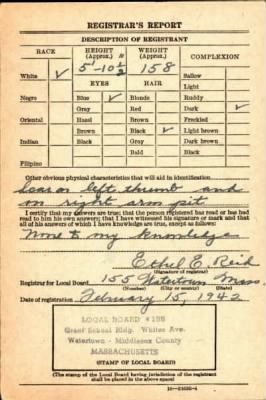 REGISTRAR'S REPORT
DESCRIPTION OF REGISTRANT
RACE
HEIGHT (Approx.)
WEIGHT (Approx.)
COMPLEXION
5'-10½ 158
White ✓
EYES
HAIR
Sallow
Light
Negro
Blue ✓
Blonde
Ruddy
Gray
Red
Dark ✓
Oriental
Hazel
Brown
Freckled
Brown
Black ✓
Light brown
Indian
Black
Gray
Dark brown
Bald
Black
Filipino
Other obvious physical characteristics that will aid in identification
Scar on left thumb and
on right arm pit
I certify that my answers are true; that the person registered has read or has had
read to him his own answers; that I have witnessed his signature or mark and that
all of his answers of which I have knowledge are true, except as follows:
None to my knowledge
Ethel E. Reid
(Signature of registrar)
Registrar for Local Board 155 Watertown Mass.
(Number) (City or county) (State)
Date of registration February 15, 1942
LOCAL BOARD #155
Grant School Bldg. Whites Ave.
Watertown - Middlesex County
MASSACHUSETTS
(STAMP OF LOCAL BOARD)
(The stamp of the Local Board having jurisdiction of the registrant
shall be placed in the above space.)